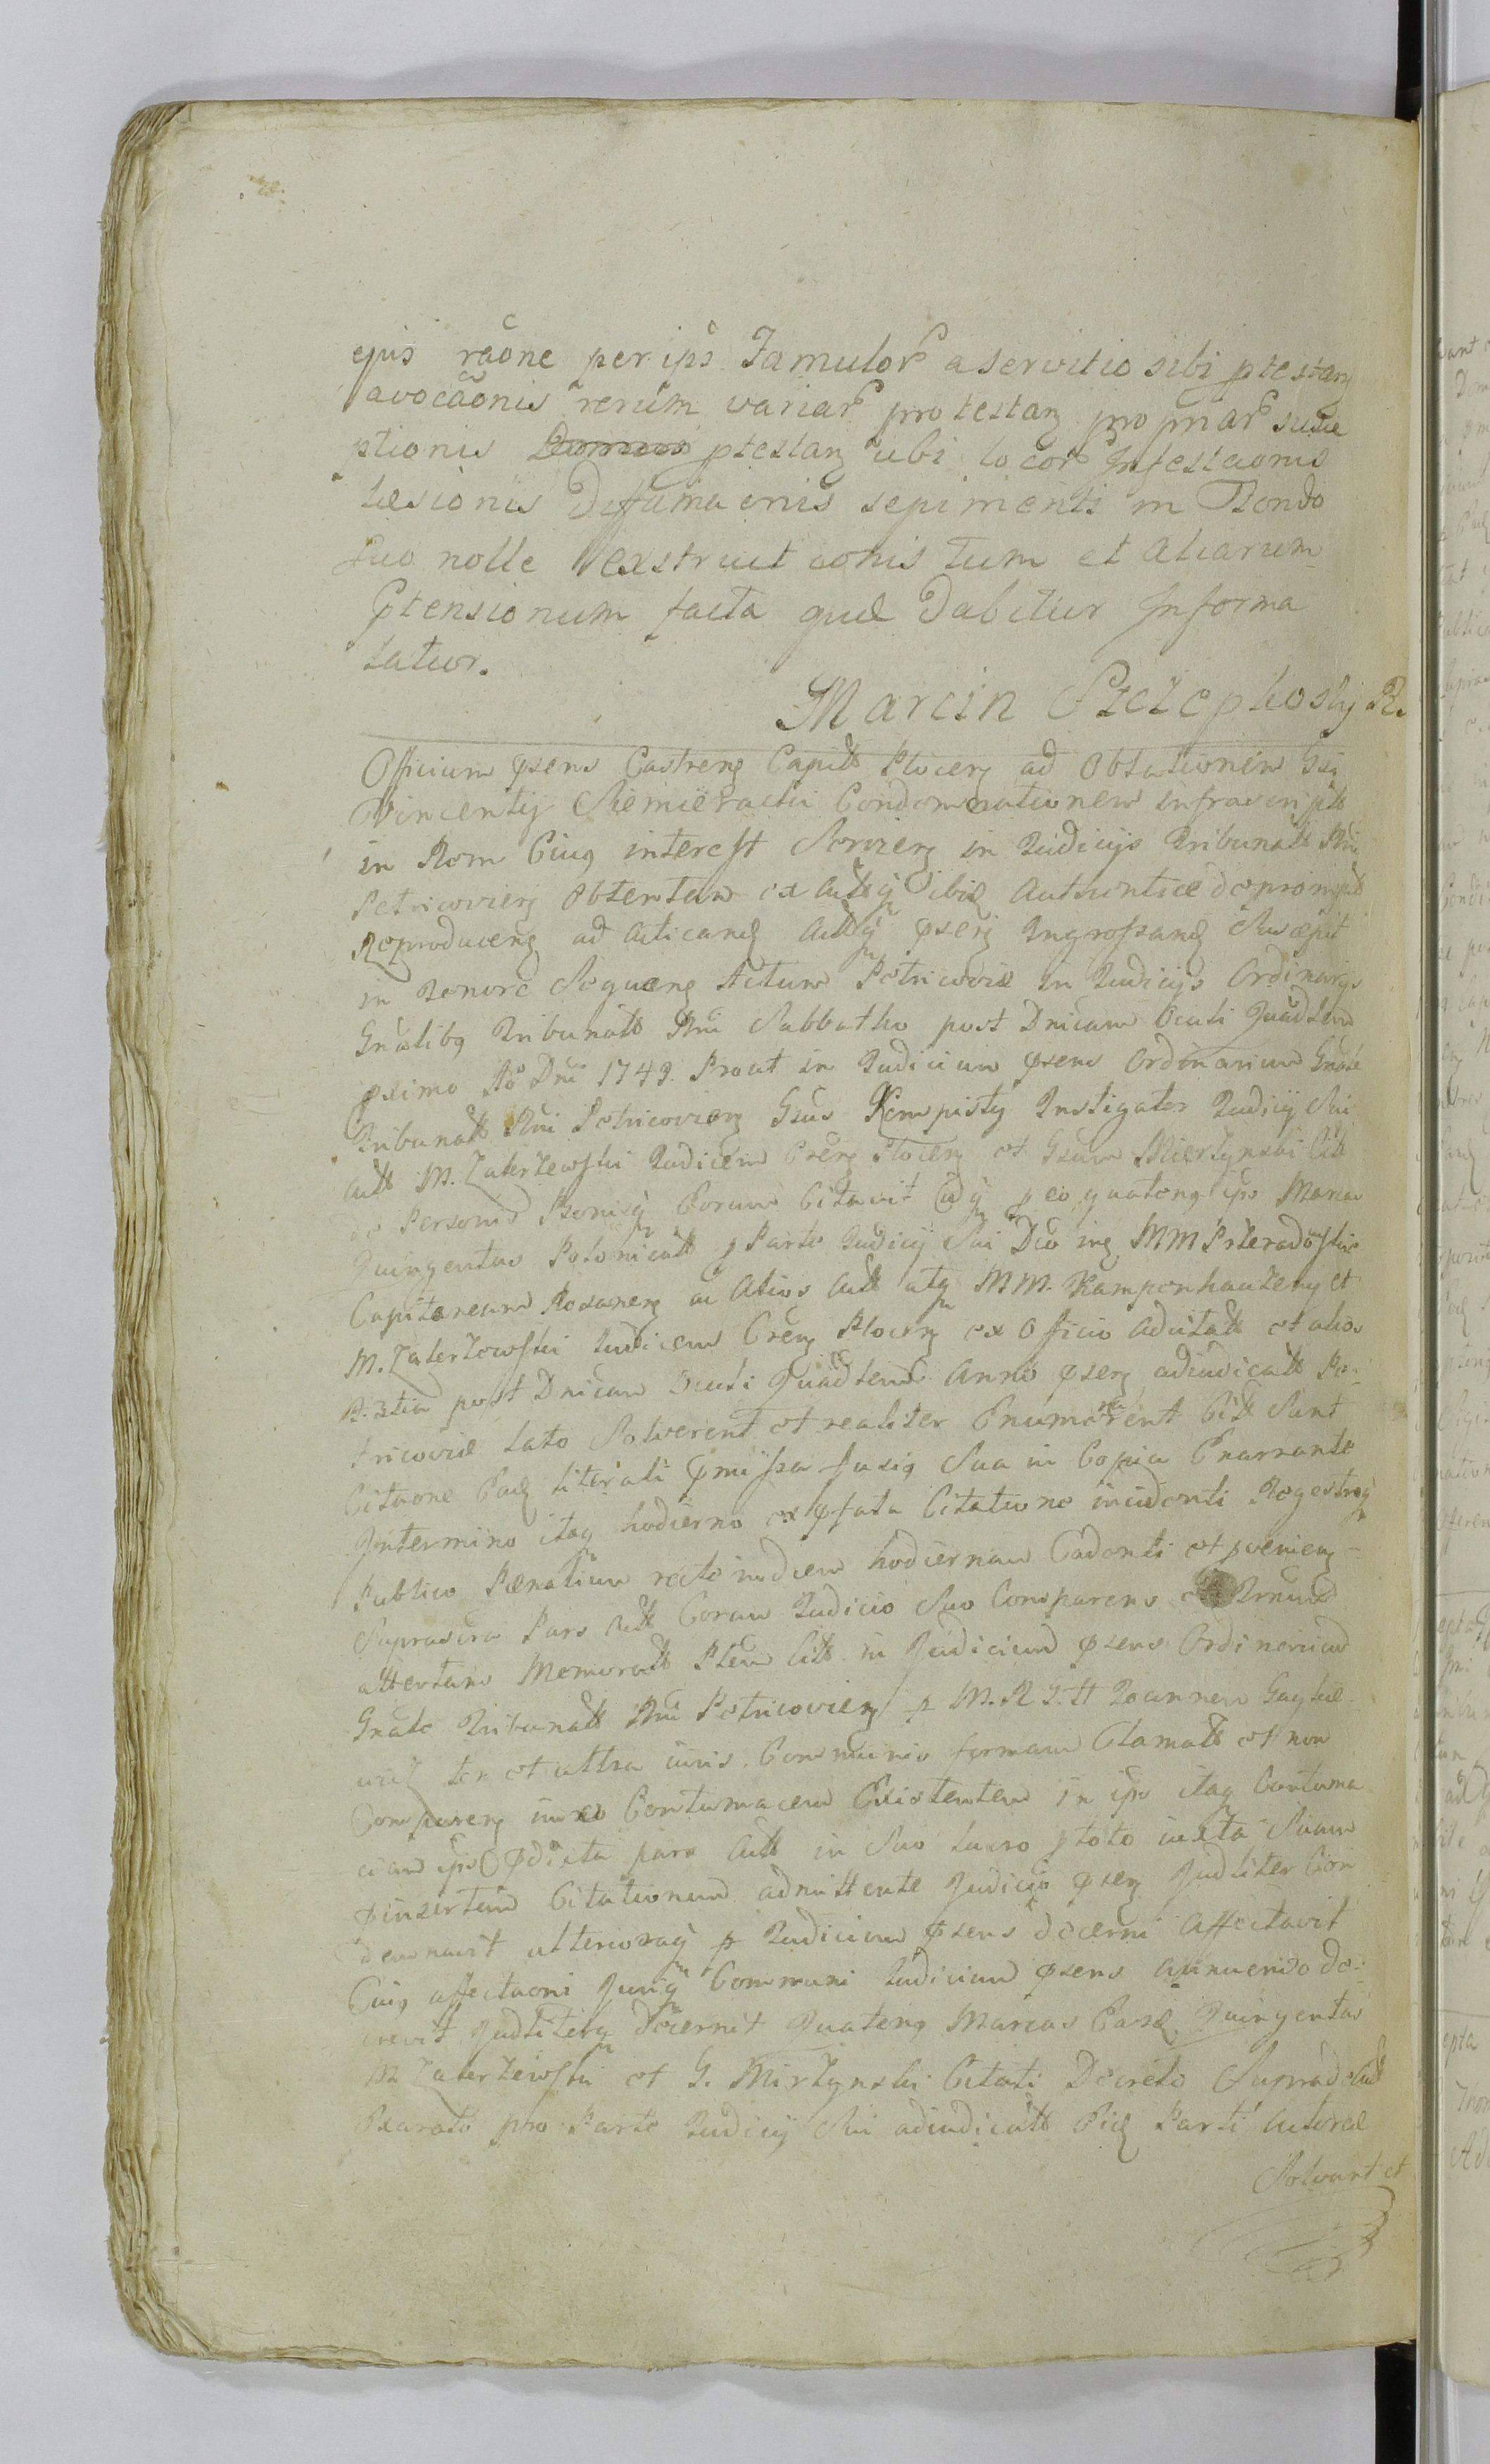 ejus raone per ips Famulor a servitio sibi ptestan
avocaonis rerum variar protestan pro pmar susce
ptionis ptestan ubi locor Infestaonis
Læsionis Diffamaonis sepimenti in Fondo
suo nolle exstructionis tum et aliarum
Ptensionum facta que dabitur Informa
tatur.
Marcin
Officium psens Castren Capitt Plocen ad Obtationem Gsi
Vincentij Condemnationem infrascriptt
in Rem Ejus interest Servien in Judicijs Tribunatt Rni
Petricovien Obtentam ex actisq ibid authentice deprompt
Reproducen ad acticand actisq psen Ingrossand Suscepit
in Tenore Sequen Actum Petricoviæ in Judicijs Ordinarijs
Gnalibq Tribunatt Rni Sabbatho post Dnicam Oculi Quadlem
pximo Ao Dni 1749. Prout in Judicium psens Ordinarium Gnale
Tribunatt Rni Petricovien Gsus Kempisty Instigator Judicij Sui
Actt M. Zakrzewski Judicem Cren Plocen et Gsum Mierzynski Citt
de Personis Bonisq Eorum Citavit Adq p eo quatenq ips Marcas
Quingentas Polonicatt p Parte Judicij Sui Dco inq MM
Capitaneum Rosanen ac Alios Actt atq MM. Kampenhauzen et
M. Zakrzewski Judicem Cren Plocen ex Officio Acitatt et alios
R. 3tia post Dnicam Oculi Quadlem Anno psen adjudicatt Pe-
tricoviæ lato Solverent et realiter Enumerarent Citt Sunt
Citaone Ead literali pmissa fusiq Sua in Copia Enarrante
Intermino itaq hodierno ex pfata Citatione incidenti Regestroq
Publico Pœnalium recto indiem hodiernam Cadenti et pvenien
Suprascra Pars Actt Coram Judicio Suo Comparens et Trnum
attentans Memoratt Ptem Citt in Judicium psens Ordinarium
Gnale Tribunatt Rni Petricovien p M. R. G. H Joannem
ter et ultra juris Communis formam Clamatt et non
Comparen imo Contumacem Existentem in ips itaq Contuma
ciam ips pdicta pars Actt in Suo Lucro ptoto iuxta Suam
pinsertam Citationem admittente Judicio psen Judliter Con
demnavit ulterioraq p Judicium psens decerni Affectavit
Cuiq affectaoni Juriq Communi Judicium psens annuendo de-
crevit Judliterq decernit Quatenq Marcas Easd Quingentas
M Zakrzewski et G. Mirzynski Citati Decreto
Exarato pro Parte Judicij Sui adjudicatt Eid Parti Actoreæ
Solvant et